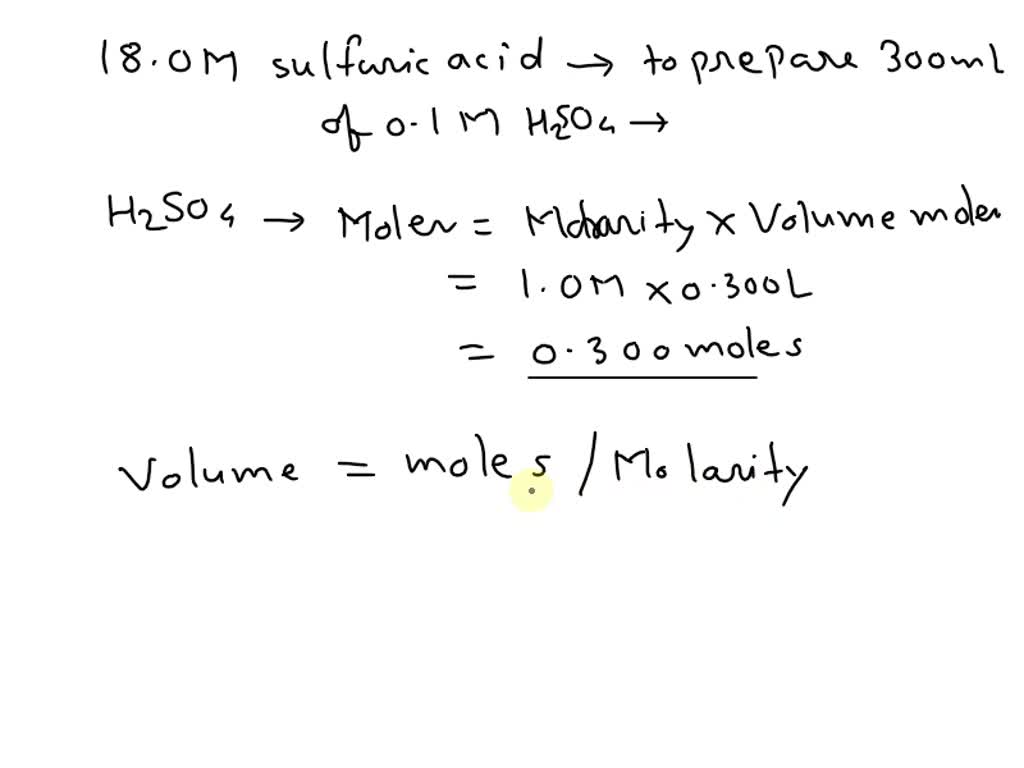 18.0M sulfuric acid → to prepare 300ml
of 0.1 M H2SO4 →
H2SO4 → Moles = Molarity x Volume moles
= 1.0M x 0.300L
= 0.300 moles
Volume = moles / Molarity